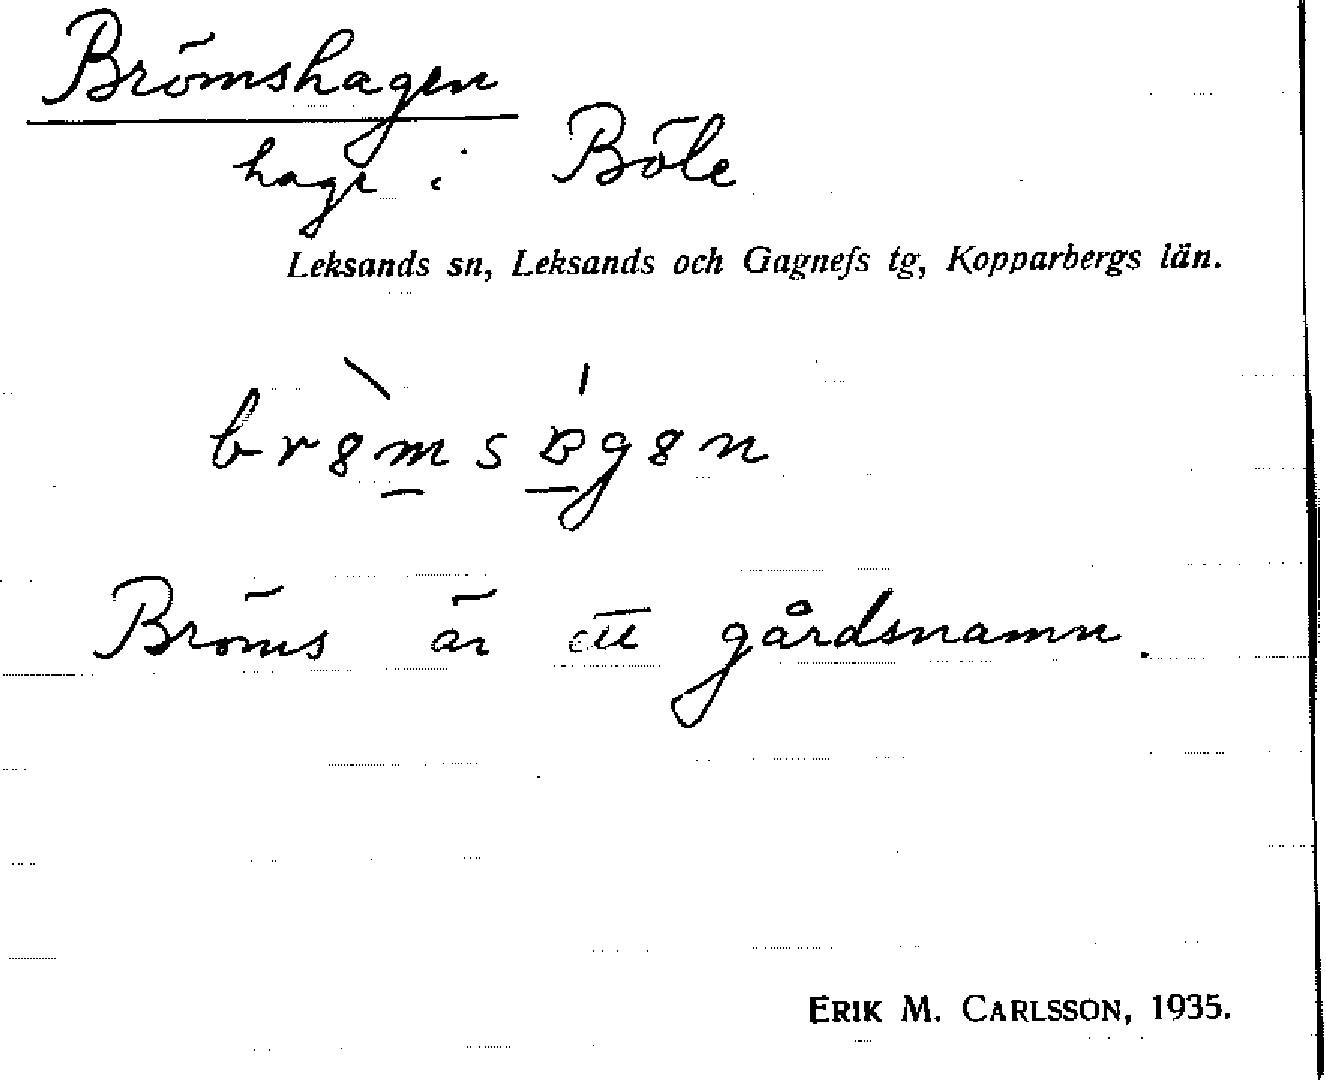 Brömshagen
hage i Böle
Leksands sn, Leksands och Gagnefs tg, Kopparbergs län.
Bröms är ett gårdsnamn.
ERIK M. CARLSSON, 1935.